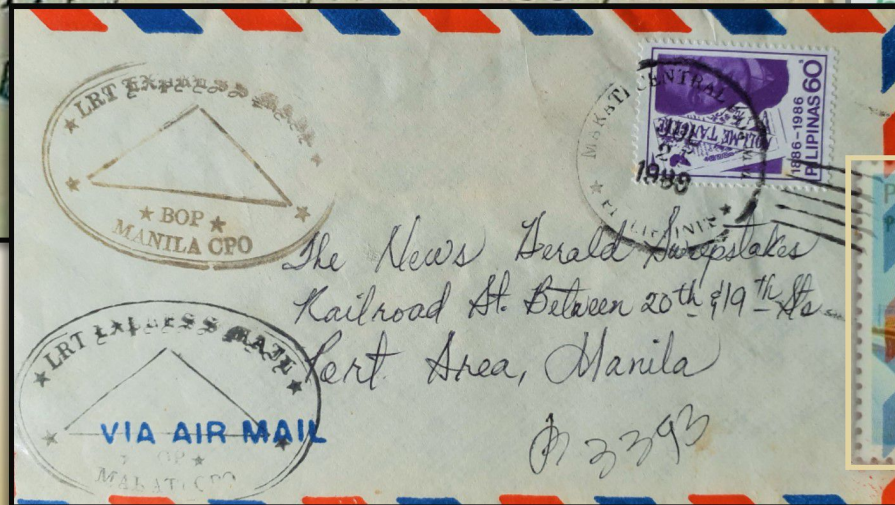 LRT EXPRESS MAIL
★ BOP ★
MANILA CPO
MAKATI CENTRAL
JUL
2
PHILIPPINES
NOLI ME TANGERE
1886-1986
PILIPINAS 60
The News Herald Sweepstakes
Railroad St. Between 20th & 19th Sts
Port Area, Manila
3393
LRT EXPRESS MAIL
VIA AIR MAIL
MAKATI CPO